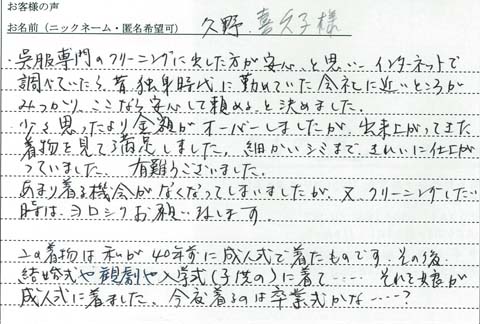 お客様の声
お名前（ニックネーム・匿名希望可） 久野 喜久子様
・呉服専門のクリーニングに出した方が安心と思い インターネットで
調べていたら 昔独身時代に勤めていた会社に近いところが
みつかり、ここなら安心して頼めると決めました。
少々思ったより金額がオーバーしましたが、出来上がってきた
着物を見て満足しました。細かいシミまで、きれいに仕上が
っていました。 有難うございました。
あまり着る機会がなくなってしまいましたが、又、クリーニングしたい
時は、ヨロシクお願い致します。
この着物は私が40年前に成人式で着たものです。その後、
結婚式や観劇や入学式(子供の)に着て‥‥‥ それを娘が
成人式に着ました。今度着るのは卒業式かな‥‥？